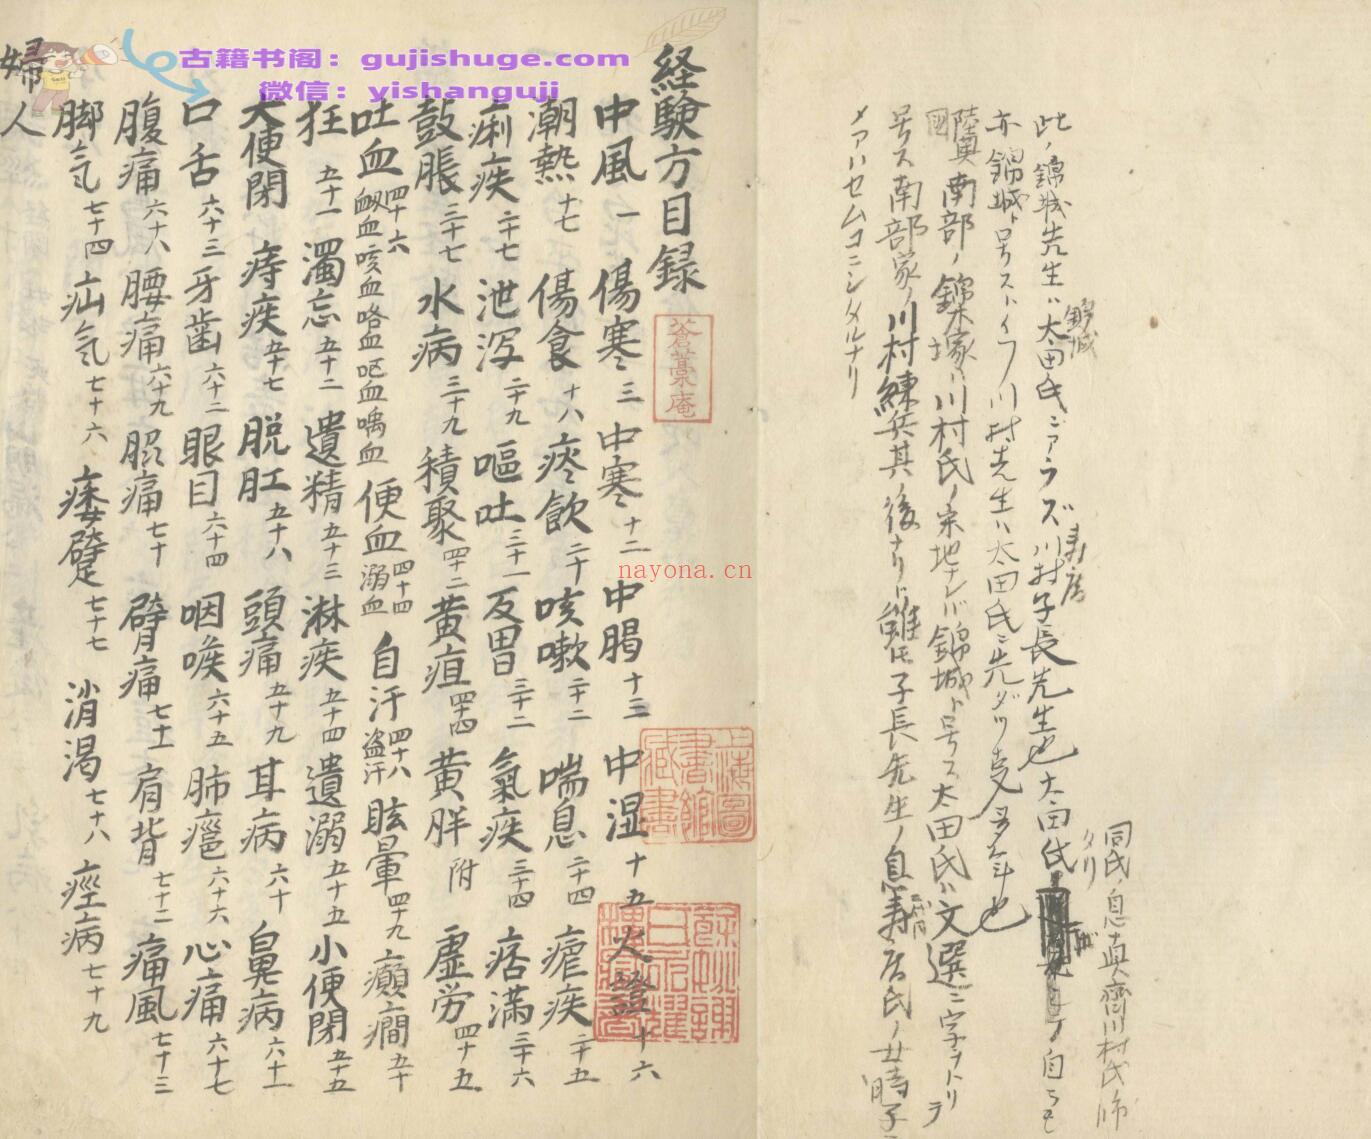 古籍书阁：gujishuge.com
微信：yishanguji
nayona.cn
同氏ノ息真齋川村氏
タリ
此ノ錦城先生ハ太田氏ニアラズ川村子長先生也太田氏
壽庵
錦城
亦錦城ト号ストイフ川村先生ハ太田氏ニ先ダツ
陸奥南部ノ錦塚ハ川村氏ノ采地ナレバ錦城ト号ス太田氏ハ文選ニ字ヲトリ
國
号ス南部家ノ川村練兵其ノ後ナリト雖モ子長先生ノ息壽庵氏ノ女時子
メアハセムコニシタルナリ
経験方目録
蒼藁庵
中風一 傷寒三 中寒十二 中暍十三 中湿十五 火證十六
潮熱十七 傷食十八 痰飲二十 咳嗽二十二 喘息二十四 瘧疾二十五
痢疾二十七 泄瀉二十九 嘔吐三十一 反胃三十二 氣疾三十四 痞満三十六
鼓脹三十七 水病三十九 積聚四十二 黄疸四十四 黄胖附 虚労四十五
吐血四十六 衂血咳血咯血嘔血喝血 便血四十四 溺血 自汗四十八 盗汗 眩暈四十九 癲癇五十
狂五十一 濁忘五十二 遺精五十三 淋疾五十四 遺溺五十五 小便閉五十五
大便閉 痔疾五十七 脱肛五十八 頭痛五十九 耳病六十 鼻病六十一
口舌六十三 牙歯六十二 眼目六十四 咽喉六十五 肺癰六十六 心痛六十七
腹痛六十八 腰痛六十九 脇痛七十 臂痛七十一 肩背七十二 痛風七十三
脚气七十四 疝气七十六 痿躄七十七 消渇七十八 痙病七十九
婦人
上海圖書館藏書